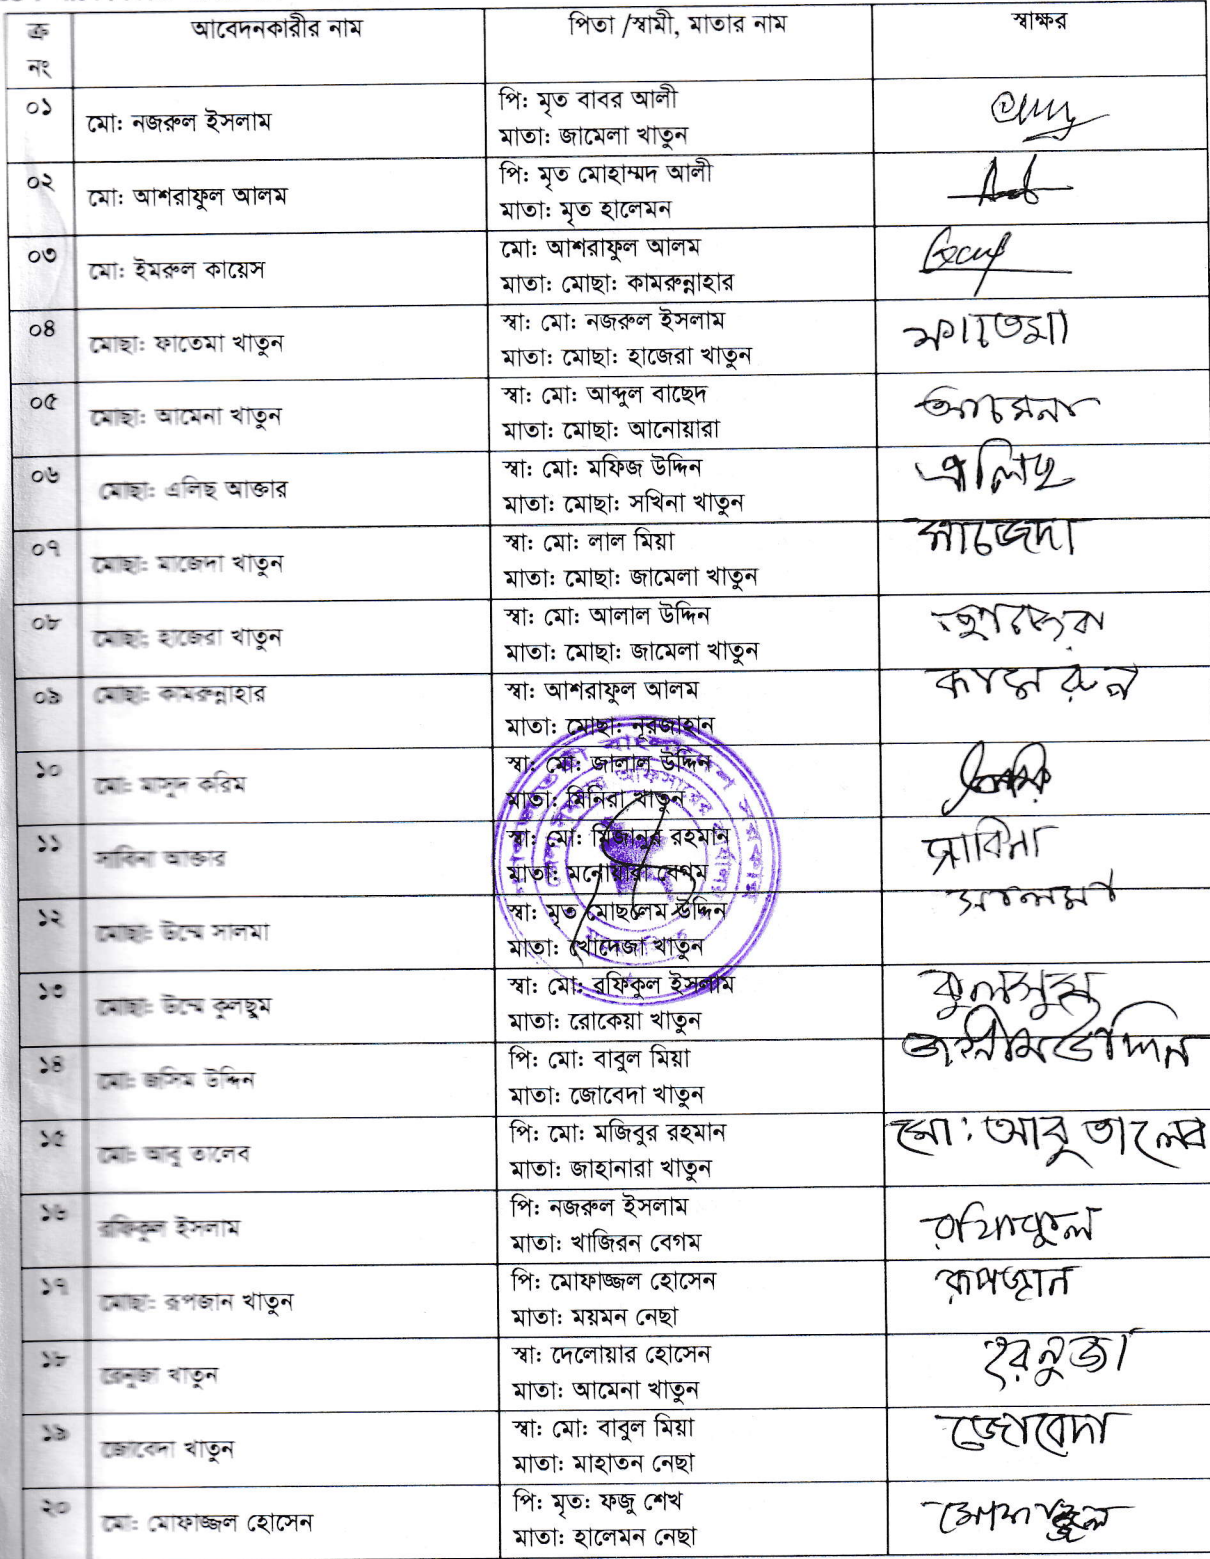 ক্র নং আবেদনকারীর নাম পিতা /স্বামী, মাতার নাম স্বাক্ষর
০১ মো: নজরুল ইসলাম পি: মৃত বাবর আলী
মাতা: জামেলা খাতুন
০২ মো: আশরাফুল আলম পি: মৃত মোহাম্মদ আলী
মাতা: মৃত হালেমন
০৩ মো: ইমরুল কায়েস মো: আশরাফুল আলম
মাতা: মোছা: কামরুন্নাহার
০৪ মোছা: ফাতেমা খাতুন স্বা: মো: নজরুল ইসলাম ফাতেমা
মাতা: মোছা: হাজেরা খাতুন
০৫ মোছা: আমেনা খাতুন স্বা: মো: আব্দুল বাছেদ আমেনা
মাতা: মোছা: আনোয়ারা
০৬ মোছা: এলিছ আক্তার স্বা: মো: মফিজ উদ্দিন এলিছ
মাতা: মোছা: সখিনা খাতুন
০৭ মোছা: মাজেদা খাতুন স্বা: মো: লাল মিয়া মাজেদা
মাতা: মোছা: জামেলা খাতুন
০৮ মোছা: হাজেরা খাতুন স্বা: মো: আলাল উদ্দিন হাজেরা
মাতা: মোছা: জামেলা খাতুন
০৯ মোছা: কামরুন্নাহার স্বা: আশরাফুল আলম কামরুন
মাতা: মোছা: নূরজাহান
১০ মো: মাসুদ করিম স্বা: মো: জালাল উদ্দিন
মাতা: মিনিরা খাতুন
১১ সাবিনা আক্তার স্বা: মো: মিজানুর রহমান সাবিনা
মাতা: মনোয়ারা বেগম
১২ মোছা: উম্মে সালমা স্বা: মৃত মোছলেম উদ্দিন সালমা
মাতা: খোদেজা খাতুন
১৩ মোছা: উম্মে কুলছুম স্বা: মো: রফিকুল ইসলাম কুলসুম
মাতা: রোকেয়া খাতুন
১৪ মো: জসিম উদ্দিন পি: মো: বাবুল মিয়া জসীমউদ্দিন
মাতা: জোবেদা খাতুন
১৫ মো: আবু তালেব পি: মো: মজিবুর রহমান মো: আবু তালেব
মাতা: জাহানারা খাতুন
১৬ রফিকুল ইসলাম পি: নজরুল ইসলাম রফিকুল
মাতা: খাজিরন বেগম
১৭ মোছা: রূপজান খাতুন পি: মোফাজ্জল হোসেন রূপজান
মাতা: ময়মন নেছা
১৮ রেনুজা খাতুন স্বা: দেলোয়ার হোসেন রেনুজা
মাতা: আমেনা খাতুন
১৯ জোবেদা খাতুন স্বা: মো: বাবুল মিয়া জোবেদা
মাতা: মাহাতন নেছা
২০ মো: মোফাজ্জল হোসেন পি: মৃত: ফজু শেখ মোফাজ্জল
মাতা: হালেমন নেছা